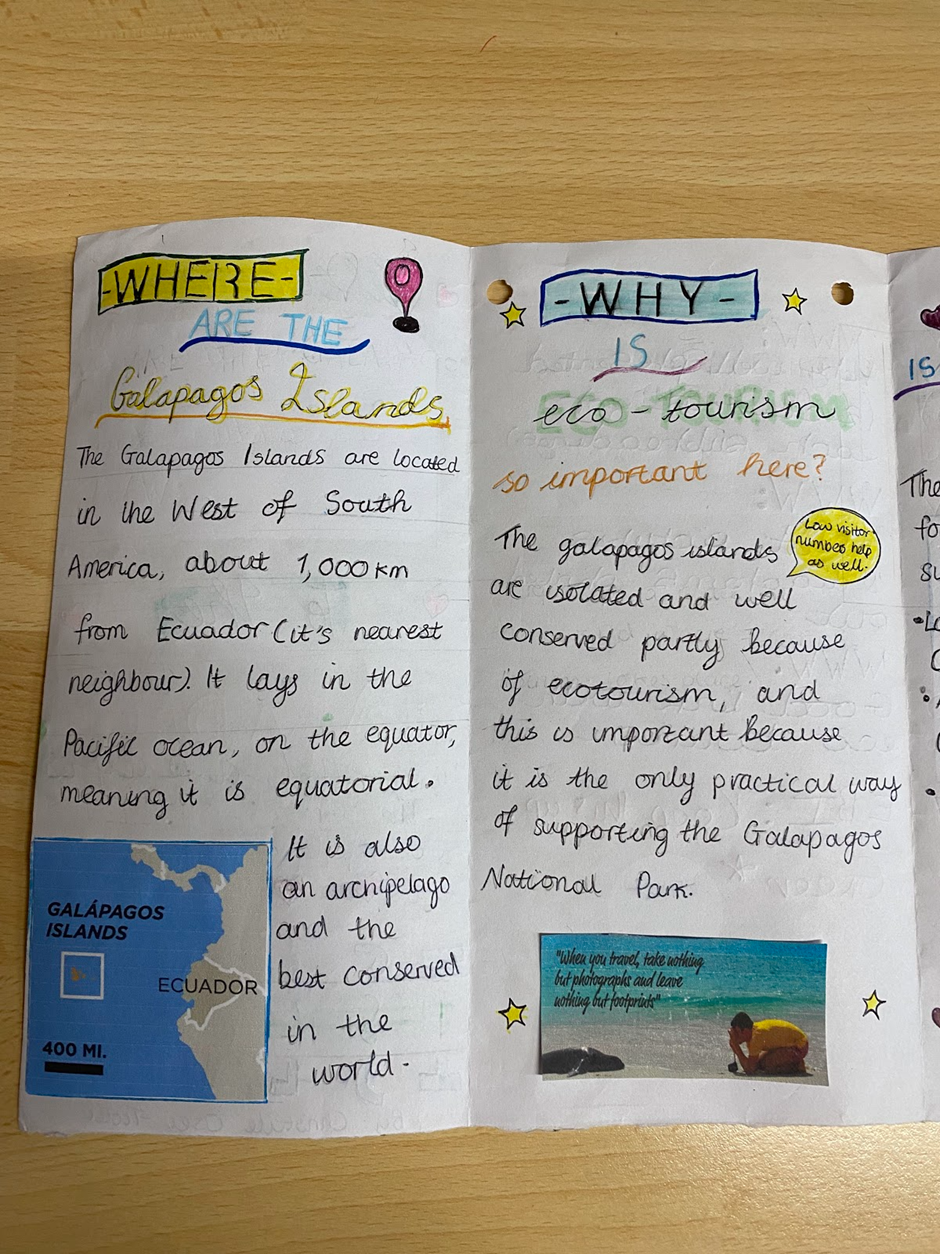 -WHERE-
ARE THE
Galapagos Islands
The Galapagos Islands are located
in the West of South
America, about 1,000 km
from Ecuador (it's nearest
neighbour). It lays in the
Pacific ocean, on the equator,
meaning it is equatorial.
It is also
an archipelago
and the
best conserved
in the
world.
GALÁPAGOS
ISLANDS
ECUADOR
400 MI.
-WHY-
IS
eco-tourism
so important here?
Low visitor
number help
as well.
The galapagos islands
are isolated and well
conserved partly because
of ecotourism, and
this is important because
it is the only practical way
of supporting the Galapagos
National Park.
"When you travel, take nothing
but photographs and leave
nothing but footprints"
IS
The